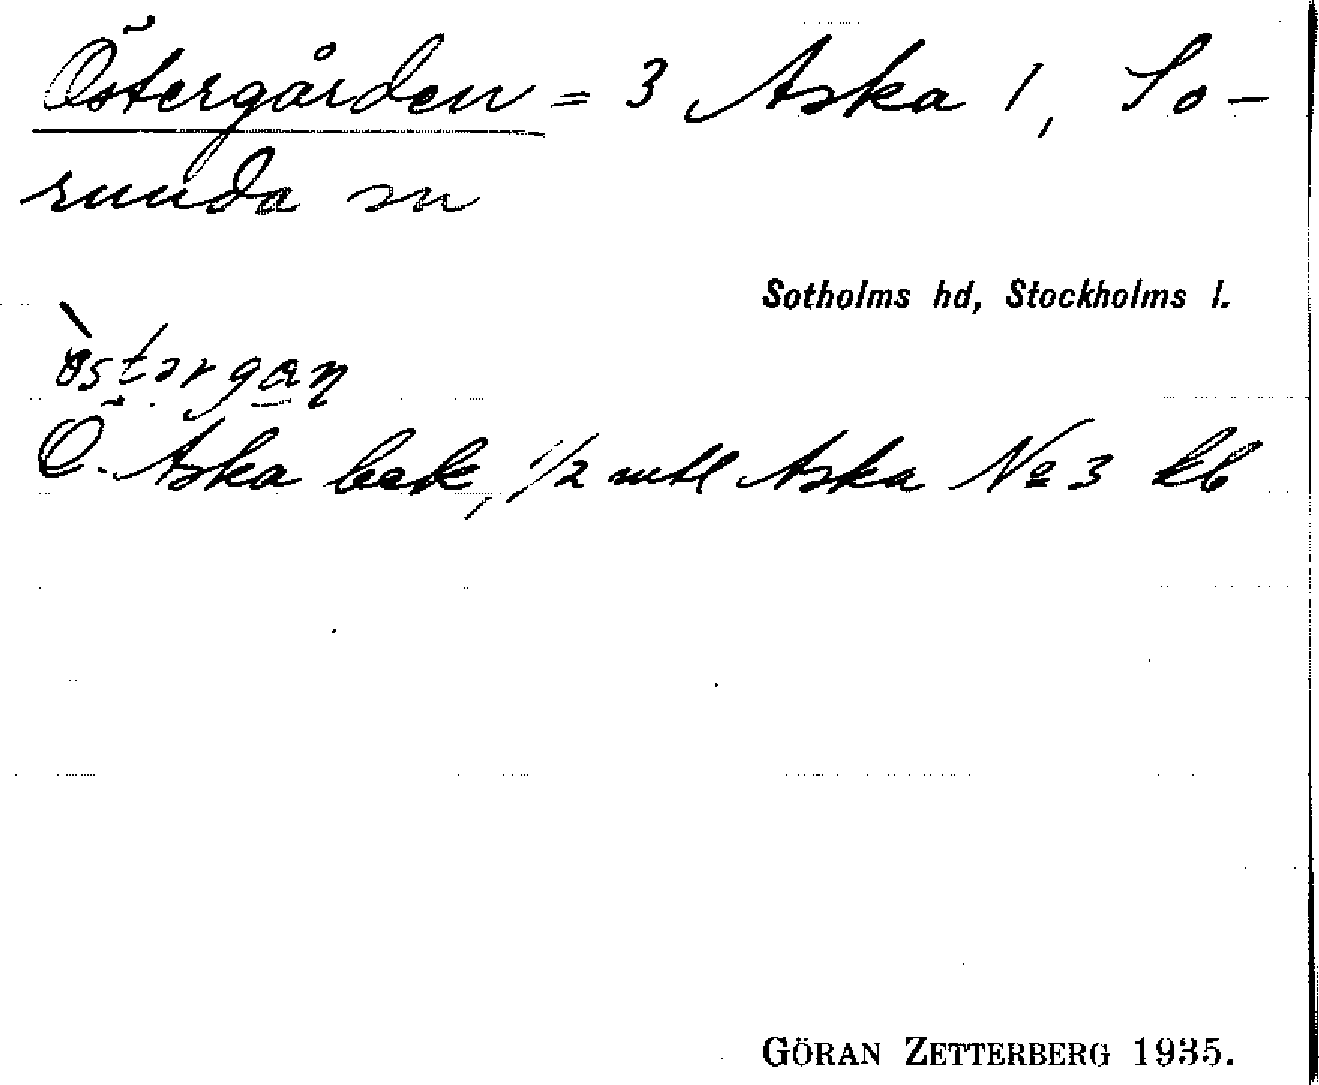 Östergården = 3 Aska 1, So-
runda sn
Sotholms hd, Stockholms l.
ˋöstərgan
Ö. Aska bek, 1/2 mtl Aska No 3 kb
GÖRAN ZETTERBERG 1935.